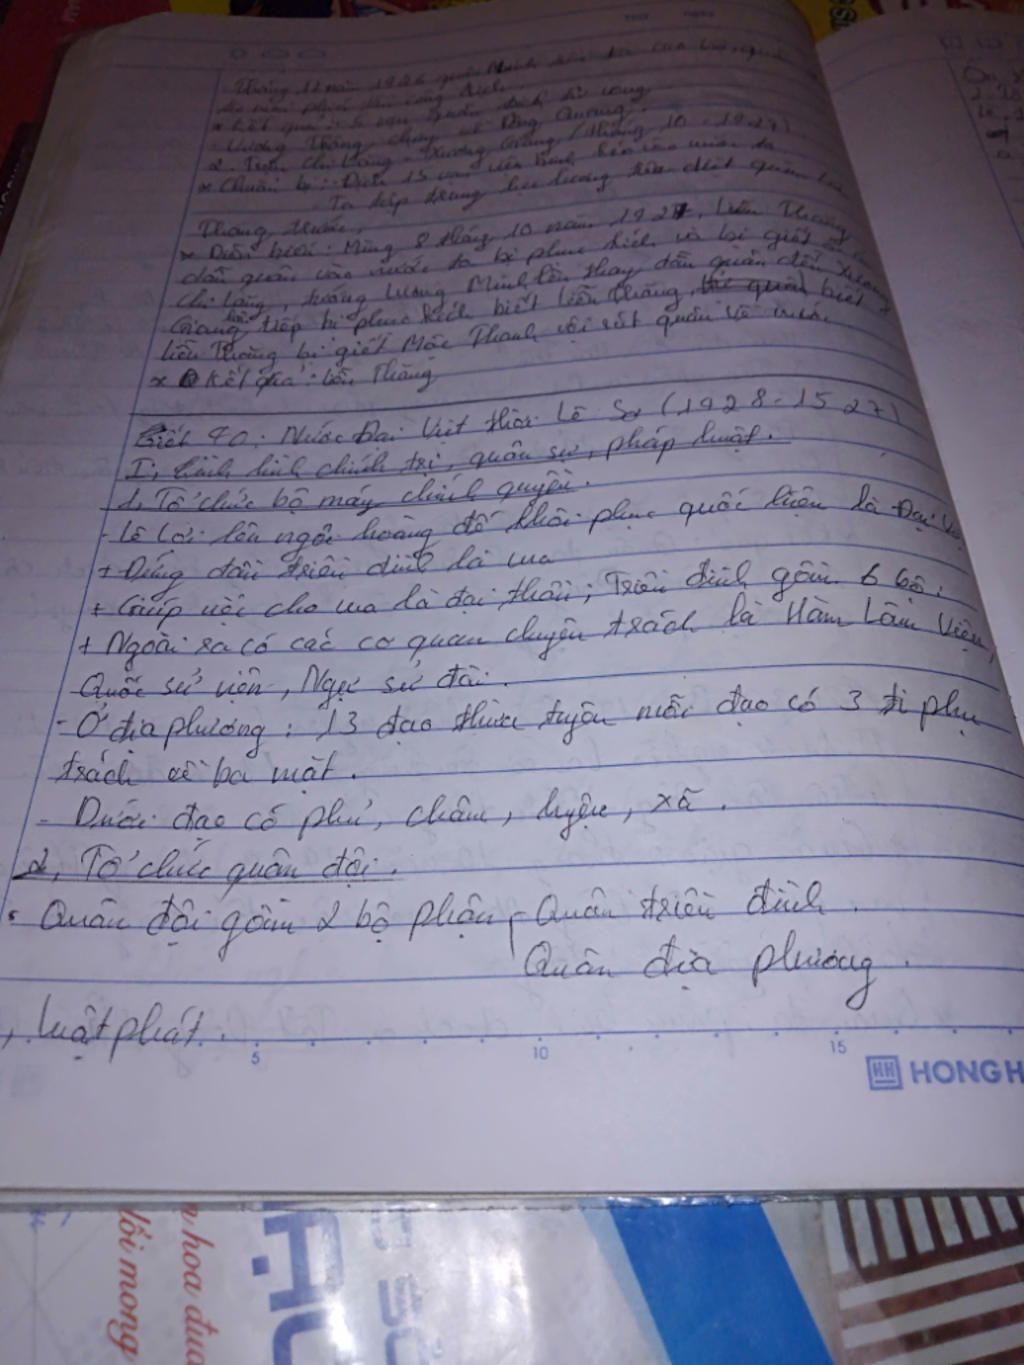 Tháng 11 năm 1426 quân Minh
* Kết quả: 5 vạn quân địch tử vong
Vương Thông chạy về Đông Quan.
2. Trận Chi Lăng - Xương Giang (tháng 10 - 1427)
* Chuẩn bị: - Địch 15 vạn viện binh kéo vào nước ta
- Ta tập trung lực lượng tiêu diệt quân Liễu
Thăng trước.
* Diễn biến: Mùng 8 tháng 10 năm 1427, Liễu Thăng
dẫn quân vào nước ta bị phục kích và bị giết ở
Chi Lăng, tướng Lương Minh lên thay dẫn quân đến Xương
Giang, tiếp bị phục kích biết Liễu Thăng, thì quân biết
Liễu Thăng bị giết Mộc Thạnh vội rút quân về nước
* Kết quả: Liễu Thăng
Tiết 40: Nước Đại Việt thời Lê Sơ (1428-1527)
I, tình hình chính trị, quân sự, pháp luật.
1, Tổ chức bộ máy chính quyền.
- Lê Lợi lên ngôi hoàng đế khôi phục quốc hiệu là Đại Việ
+ Đứng đầu triều đình là vua
+ Giúp việc cho vua là đại thần; Triều đình gồm 6 bộ;
+ Ngoài ra có các cơ quan chuyên trách là Hàm Lâm Viện,
Quốc sử viện, Ngự sử đài.
- Ở địa phương: 13 đạo thừa tuyên mỗi đạo có 3 ti phụ
trách về ba mặt.
- Dưới đạo có phủ, châu, huyện, xã.
2, Tổ chức quân đội.
- Quân đội gồm 2 bộ phận - Quân triều đình.
Quân địa phương.
, luật phát.
5 10 15
HH HONG H
n hoa đua
lối mong